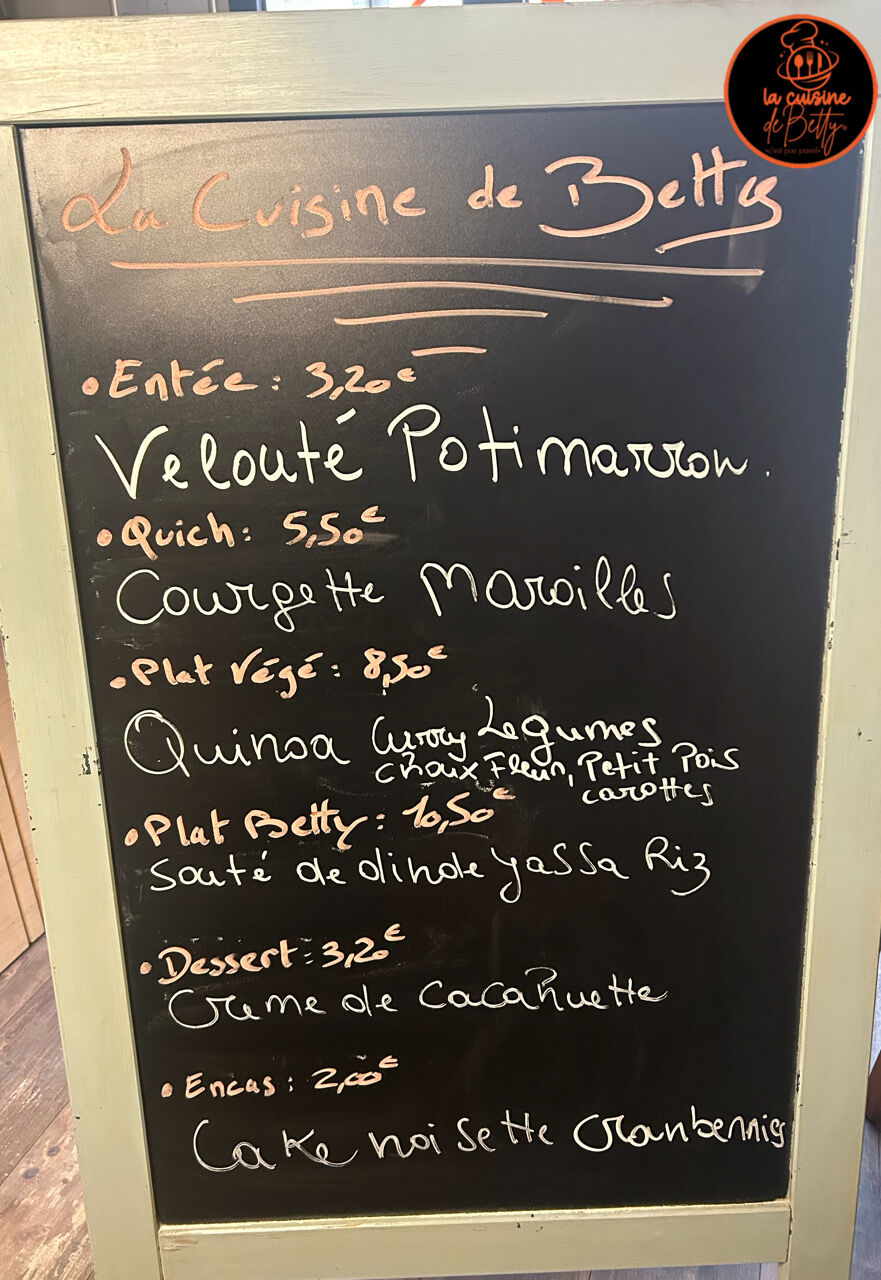 la cuisine
de Betty
"c'est pas pareil"
La Cuisine de Betty
• Entée : 3,20€
Velouté Potimarron.
• Quich : 5,50€
Courgette Maroilles
• Plat Végé : 8,50€
Quinoa Curry Legumes
choux Fleur, Petit Pois
carottes
• Plat Betty : 10,50€
Sauté de dinde yassa Riz
• Dessert : 3,20€
Creme de Cacahuette
• Encas : 2,00€
Cake noisette Cranberries